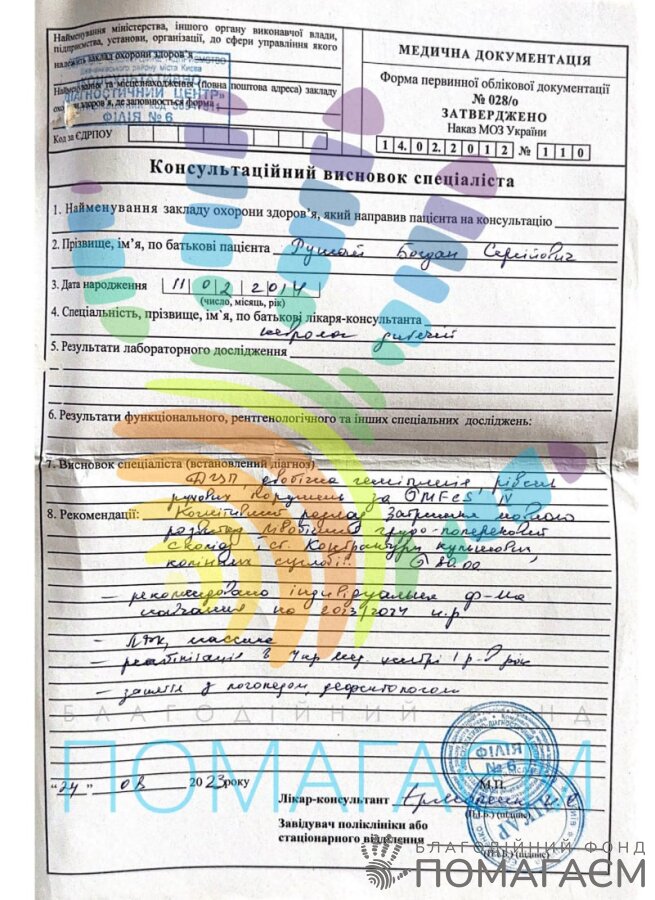 Найменування міністерства, іншого органу виконавчої влади,
підприємства, установи, організації, до сфери управління якого
належить заклад охорони здоров'я
Найменування та місцезнаходження (повна поштова адреса) закладу
охорони здоров'я, де заповнюється форма
ДІАГНОСТИЧНИЙ ЦЕНТР"
ФІЛІЯ № 6
Код за ЄДРПОУ
МЕДИЧНА ДОКУМЕНТАЦІЯ
Форма первинної облікової документації
№ 028/о
ЗАТВЕРДЖЕНО
Наказ МОЗ України
14.02.2012 № 110
Консультаційний висновок спеціаліста
1. Найменування закладу охорони здоров'я, який направив пацієнта на консультацію
2. Прізвище, ім'я, по батькові пацієнта Богдан Сергійович
3. Дата народження 11 02 2014
(число, місяць, рік)
4. Спеціальність, прізвище, ім'я, по батькові лікаря-консультанта
невролог дитячий
5. Результати лабораторного дослідження
6. Результати функціонального, рентгенологічного та інших спеціальних досліджень:
7. Висновок спеціаліста (встановлений діагноз)
ДЦП, геміплегія, рівень
рухових порушень за GMFCS IV
8. Рекомендації: Когнітивний розлад затримка мовного
розвитку грудо-поперековий
сколіоз ст. Контрактури кульшових,
колінних суглобів G 80.00
– рекомендовано індивідуальна ф-ма
навчання на 2023/2024 н.р.
– ЛФК, массаж
– реабілітація в 1 р. рік
– заняття з логопедом, дефектологом
"24" 08 2023 року
ФІЛІЯ
№ 6
М.П.
Лікар-консультант
(П.І.Б.) (підпис)
Завідувач поліклініки або
стаціонарного відділення
(П.І.Б.) (підпис)
БЛАГОДІЙНИЙ ФОНД
ПОМАГАЄМ
БЛАГОДІЙНИЙ ФОНД
ПОМАГАЄМ